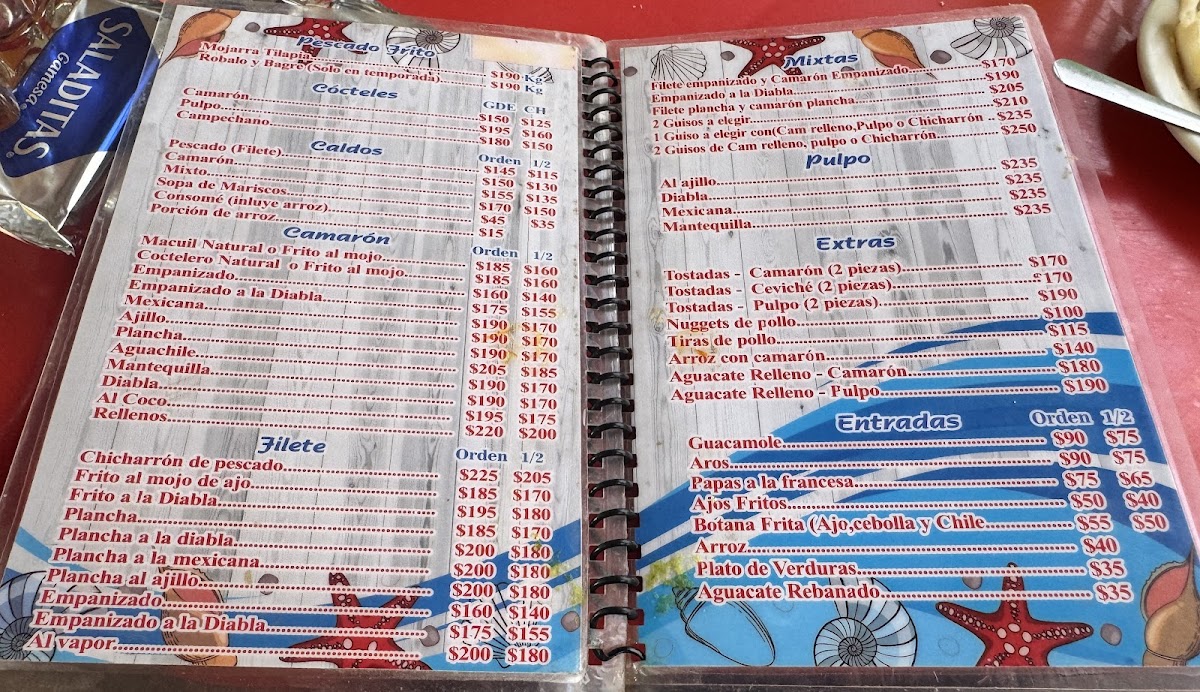 SALADITAS
Gamesa
Pescado Frito
Mojarra Tilapia $190 Kg
Robalo y Bagre (Solo en temporada) $190 Kg
Cócteles GDE CH
Camarón $150 $125
Pulpo $195 $160
Campechano $180 $150
Caldos Orden 1/2
Pescado (Filete) $145 $115
Camarón $150 $130
Mixto $155 $135
Sopa de Mariscos $170 $150
Consomé (inluye arroz) $45 $35
Porción de arroz $15
Camarón Orden 1/2
Macuil Natural o Frito al mojo $185 $160
Coctelero Natural o Frito al mojo $185 $160
Empanizado $160 $140
Empanizado a la Diabla $175 $155
Mexicana $190 $170
Ajillo $190 $170
Plancha $190 $170
Aguachile $205 $185
Mantequilla $190 $170
Diabla $190 $170
Al Coco $195 $175
Rellenos $220 $200
Filete Orden 1/2
Chicharrón de pescado $225 $205
Frito al mojo de ajo $185 $170
Frito a la Diabla $195 $180
Plancha $185 $170
Plancha a la diabla $200 $180
Plancha a la mexicana $200 $180
Plancha al ajillo $200 $180
Empanizado $160 $140
Empanizado a la Diabla $175 $155
Al vapor $200 $180
Mixtas
Filete empanizado y Camarón Empanizado $170
Empanizado a la Diabla $190
Filete plancha y camarón plancha $205
2 Guisos a elegir $210
1 Guiso a elegir con(Cam relleno,Pulpo o Chicharrón $235
2 Guisos de Cam relleno, pulpo o Chicharrón $250
Pulpo
Al ajillo $235
Diabla $235
Mexicana $235
Mantequilla $235
Extras
Tostadas - Camarón (2 piezas) $170
Tostadas - Ceviché (2 piezas) $170
Tostadas - Pulpo (2 piezas) $190
Nuggets de pollo $100
Tiras de pollo $115
Arroz con camarón $140
Aguacate Relleno - Camarón $180
Aguacate Relleno - Pulpo $190
Entradas Orden 1/2
Guacamole $90 $75
Aros $90 $75
Papas a la francesa $75 $65
Ajos Fritos $50 $40
Botana Frita (Ajo,cebolla y Chile $55 $50
Arroz $40
Plato de Verduras $35
Aguacate Rebanado $35